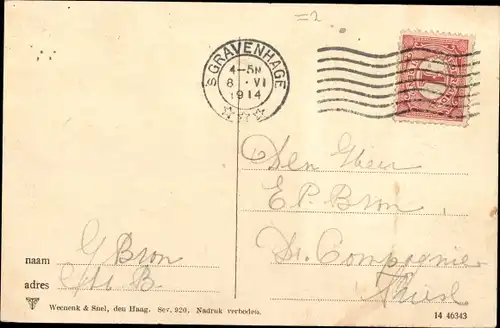 =2
'S GRAVENHAGE
4-5N
8 VI
1914
Den Heer
E P. Bron
Dr. Compagnie
Thiel
naam G Bron
adres
Weenenk & Snel, den Haag. Ser. 920. Nadruk verboden.
14 46343